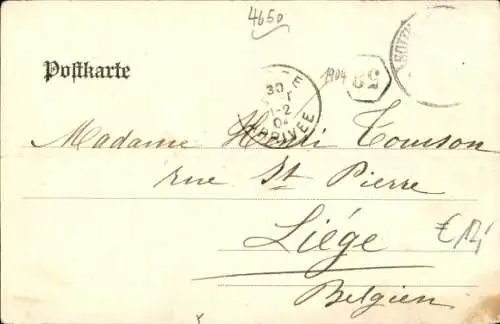 4650
Postkarte
1904
59
30
1-2
ARRIVEE
Madame Henri Tomson
rue St Pierre
Liége
Belgien